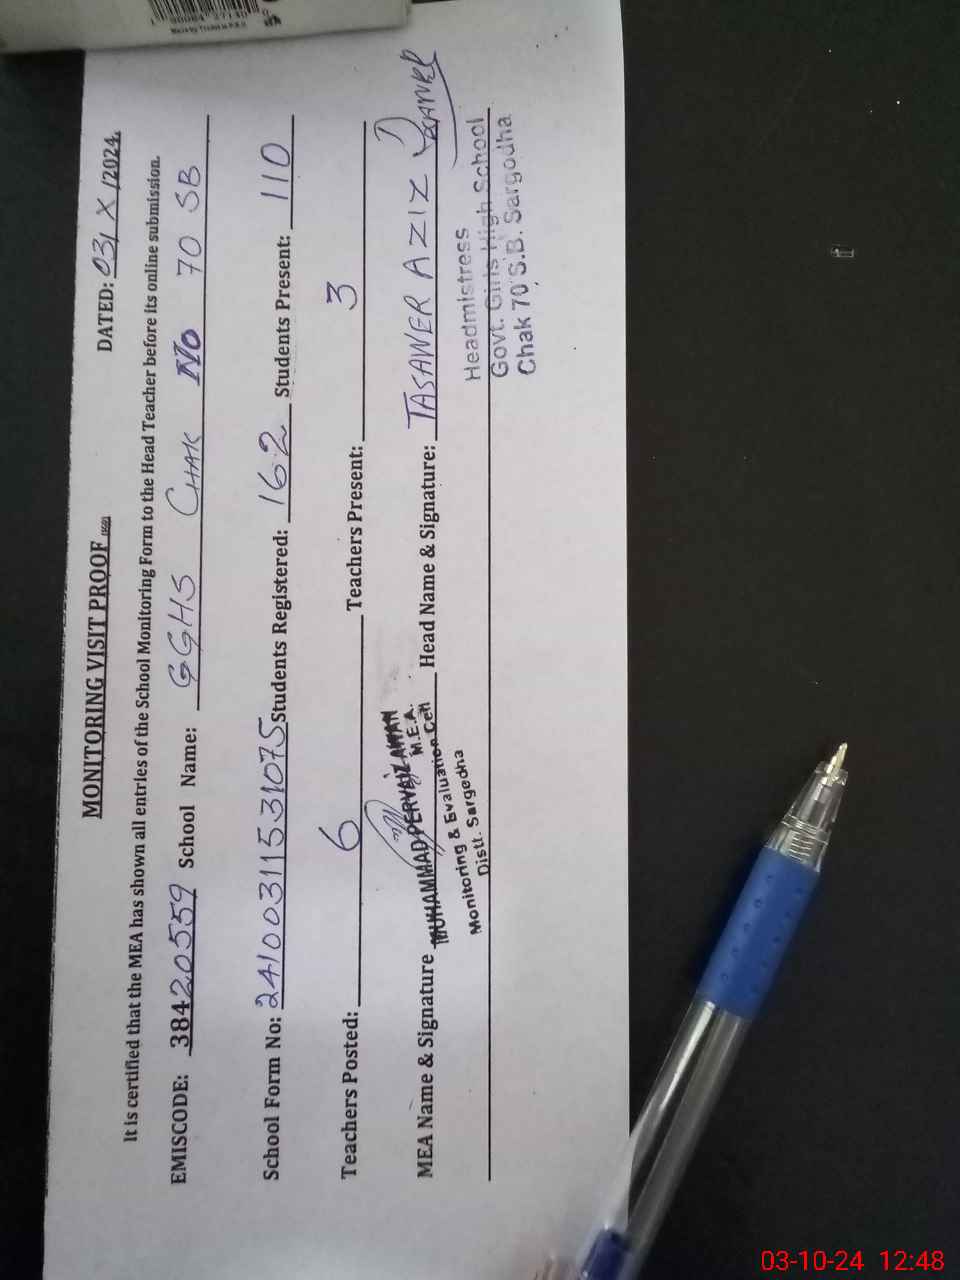 MONITORING VISIT PROOF
DATED: 03/ X /2024.
It is certified that the MEA has shown all entries of the School Monitoring Form to the Head Teacher before its online submission.
EMISCODE: 38420559 School Name: GGHS CHAK No 70 SB
School Form No: 24100311531075 Students Registered: 162 Students Present: 110
Teachers Posted: 6 Teachers Present: 3
MEA Name & Signature MUHAMMAD PERVAIZ AWAN Head Name & Signature: TASAWER AZIZ
M.E.A.
Monitoring & Evaluation Cell
Distt. Sargodha
Headmistress
Govt. Girls High School
Chak 70 S.B. Sargodha
03-10-24 12:48